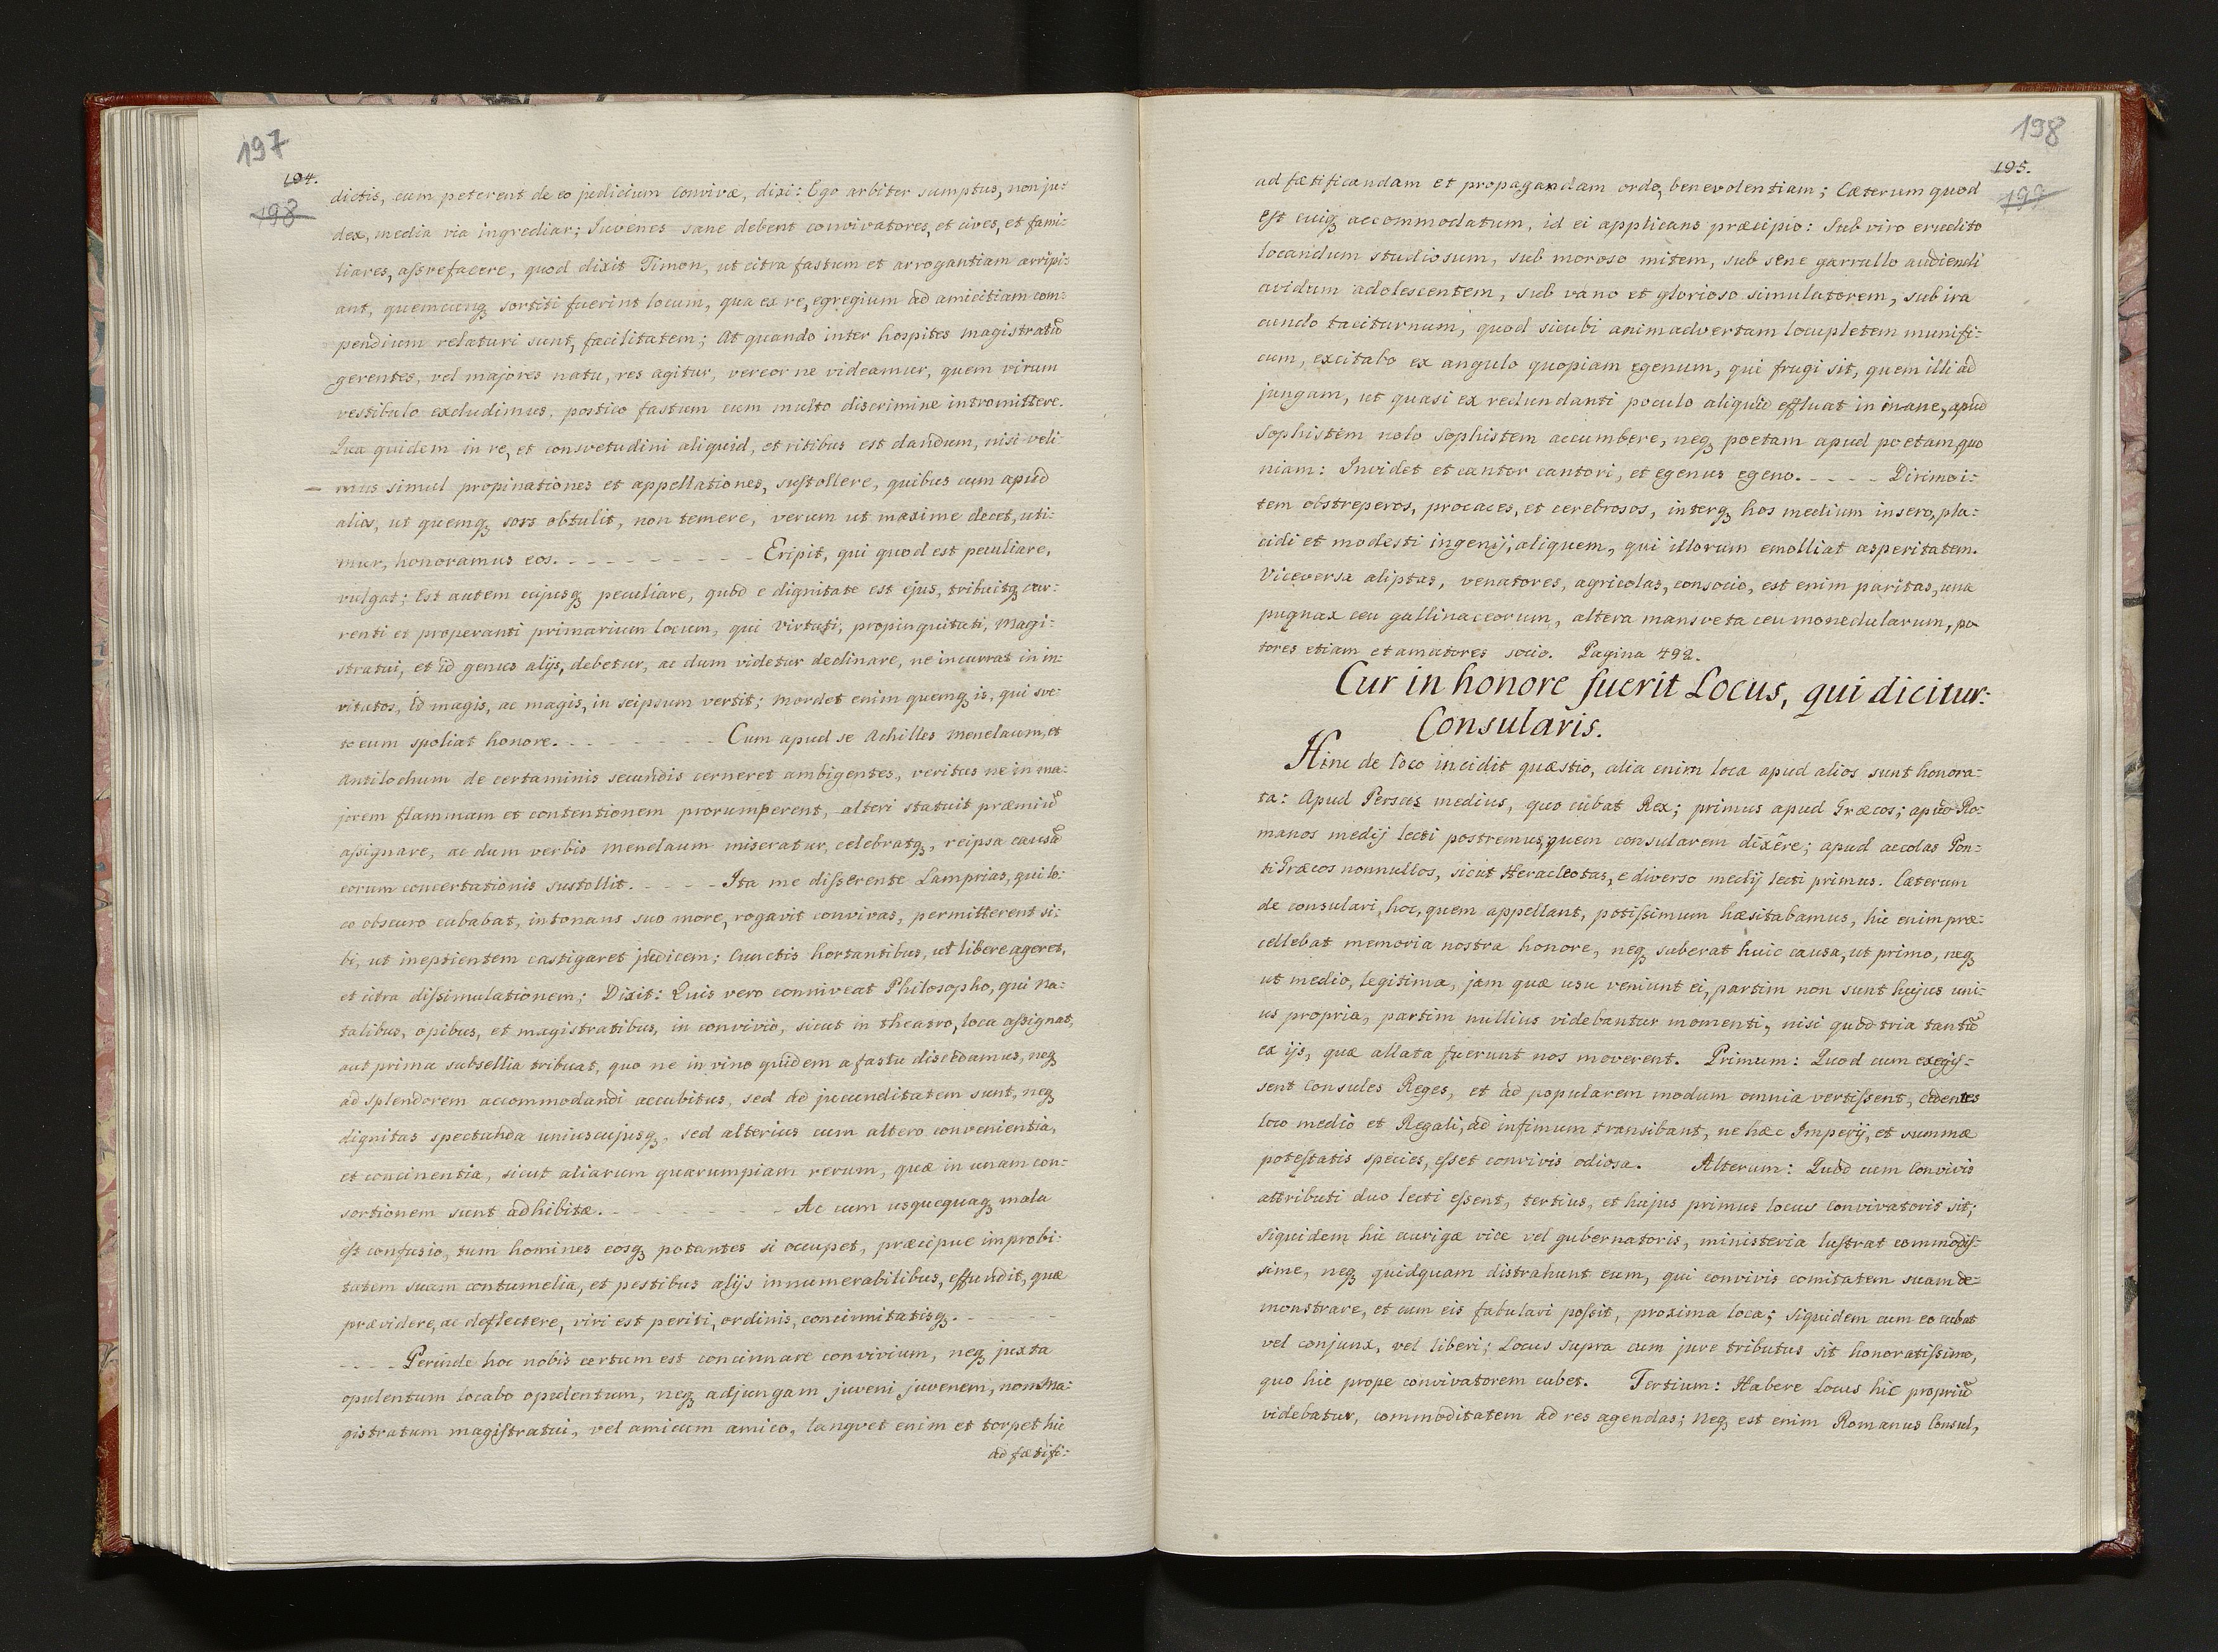 197
194.
198
dictis, cum peterent de eo judicium convivæ, dixi: Ego arbiter sumptus, non ju:
dex, media via ingrediar; Juvenes sane debent convivatores, et cives, et fami:
liares, aſsrefacere, quod dixit Timon, ut citra fastum et arrogantiam arripi:
ant, quemcunqꝫ sortiti fuerint locum, qua ex re, egregium ad amicitiam com:
pendium relaturi sunt, facilitatem; At quando inter hospites magistratū
gerentes, vel majores natu, res agitur, vereor ne videamur, quem virum
vestibulo excludimus, postico fastum cum multo discrimine intromittere.
Qua quidem in re, et consvetudini aliquid, et ritibus est dandum, nisi veli:
– mus simul propinationes et appellationes, suſtollere, quibus cum apud
alios, ut quemqꝫ sors obtulit, non temere, verum ut maxime decet, uti:
mur, honoramus eos. - - - - - - - - - Eripit, qui quod est peculiare,
vulgat; Est autem cujusqꝫ peculiare, quod e dignitate est ejus, tribuitqꝫ cur:
renti et properanti primarium locum, qui virtuti, propinquitati, Magi:
stratui, et id genus alijs, debetur, ac dum videtur declinare, ne incurrat in in:
vitatos, id magis, ac magis, in seipsum vertit; mordet enim quemqꝫ is, qui sve:
to eum spoliat honore. - - - - - - - - Cum apud se Achilles Menelaum, et
Antilochum de certaminis secundis cerneret ambigentes, veritus ne in ma:
jorem flammam et contentionem prorumperent, alteri statuit præmiū
aſsignare, ac dum verbis Menelaum miseratur, celebratqꝫ, reipsa causā
eorum concertationis sustollit. - - - - - Ita me diſserente Lamprias, qui lo:
co obscuro cubabat, intonans suo more, rogavit convivas, permitterent si:
bi, ut ineptientem castigaret judicem; Cunctis hortantibus, ut libere ageret,
et citra diſsimulationem; Dixit: Quis vero conniveat Philosopho, qui na:
talibus, opibus, et magistratibus, in convivio, sicut in theatro, loca aſsignat,
aut prima subsellia tribuat, quo ne in vino quidem a fastu discedamus, neqꝫ
ad splendorem accommodandi accubitus, sed ad jucunditatem sunt, neqꝫ
dignitas spectanda uniuscujusqꝫ, sed alterius cum altero convenientia,
et concinentia, sicut aliarum quarumpiam rerum, quæ in unam con:
sortionem sunt adhibitæ. - - - - - - - - Ac cum usquequaqꝫ mala
eſt confusio, tum homines eosqꝫ potantes si occupet, præcipue improbi:
tatem suam contumelia, et pestibus alijs innumerabilibus, effundit, quæ
prævidere, ac deflectere, viri est periti, ordinis, concinnitatisqꝫ. - - - - - -
- - - - Perinde hoc nobis certum est concinnare convivium, neqꝫ juxta
opulentum locabo opulentum, neqꝫ adjungam juveni juvenem, non Ma:
gistratum magiſtratui, vel amicum amico, langvet enim et torpet hic
ad fætifi:
198
195.
199
ad fætificandam et propagandam ordo, benevolentiam; Cæterum quod
eſt cuiqꝫ accommodatum, id ei applicans præcipio: Sub viro erudito
locandum studiosum, sub moroso mitem, sub sene garrullo audiendi
avidum adolescentem, sub vano et glorioso simulatorem, sub ira
cundo taciturnum, quod sicubi animadvertam locupletem munifi:
cum, excitabo ex angulo quopiam egenum, qui frugi sit, quem illi ad
jungam, ut quasi ex redundanti poculo aliquid effluat in inane, apud
sophistem nolo sophistem accumbere, neqꝫ poetam apud poetam, quo
niam: Invidet et cantor cantori, et egenus egeno. - - - - Dirimo i:
tem obstreperos, procaces, et cerebrosos, interqꝫ hos medium insero, pla:
cidi et modesti ingenij, aliquem, qui illorum emolliat asperitatem.
Viceversa aliptas, venatores, agricolas, consocio, est enim paritas, una
pugnax ceu gallinaceorum, altera mansveta ceu monedularum, po
tores etiam et amatores socio. Pagina 492.
Cur in honore fuerit Locus, qui dicitur:
Consularis.
Hinc de loco incidit quæstio, alia enim loca apud alios sunt honora:
ta: Apud Persas medius, quo cubat Rex; primus apud Græcos; apud Ro:
manos medij lecti postremus, quem consularem dixêre; apud accolas Pon:
ti Græcos nonnullos, sicut Heracleotas, e diverso medij lecti primus. Cæterum
de consulari, hoc, quem appellant, potiſsimum hæsitabamus, hic enim præ:
cellebat memoria nostra honore, neqꝫ suberat huic causa, ut primo, neqꝫ
ut medio, legitima, jam quæ usu veniunt ei, partim non sunt hujus uni:
us propria, partim nullius videbantur momenti, nisi quod tria tantū
ex ijs, quæ allata fuerunt nos moverent. Primum: Quod cum exegiſ:
sent Consules Reges, et ad popularem modum omnia vertiſsent, cedentes
loco medio et Regali, ad infimum transibant, ne hæc Imperij, et summæ
poteſtatis species, eſset convivis odiosa. Alterum: Quod cum Convivis
attributi duo lecti eſsent, tertius, et hujus primus locus convivatoris sit;
siquidem hic aurigæ vice vel gubernatoris, ministeria luſtrat commodiſ:
sime, neqꝫ quidquam distrahunt eum, qui convivis comitatem suam de:
monstrare, et cum eis fabulari poſsit, proxima loca; siquidem cum eo cubat
vel conjunx, vel liberi; Locus supra eum jure tributus sit honoratiſsimo,
quo hic prope convivatorem cubet. Tertium: Habere Locus hic propriū
videbatur, commoditatem ad res agendas; Neqꝫ est enim Romanus Consul,